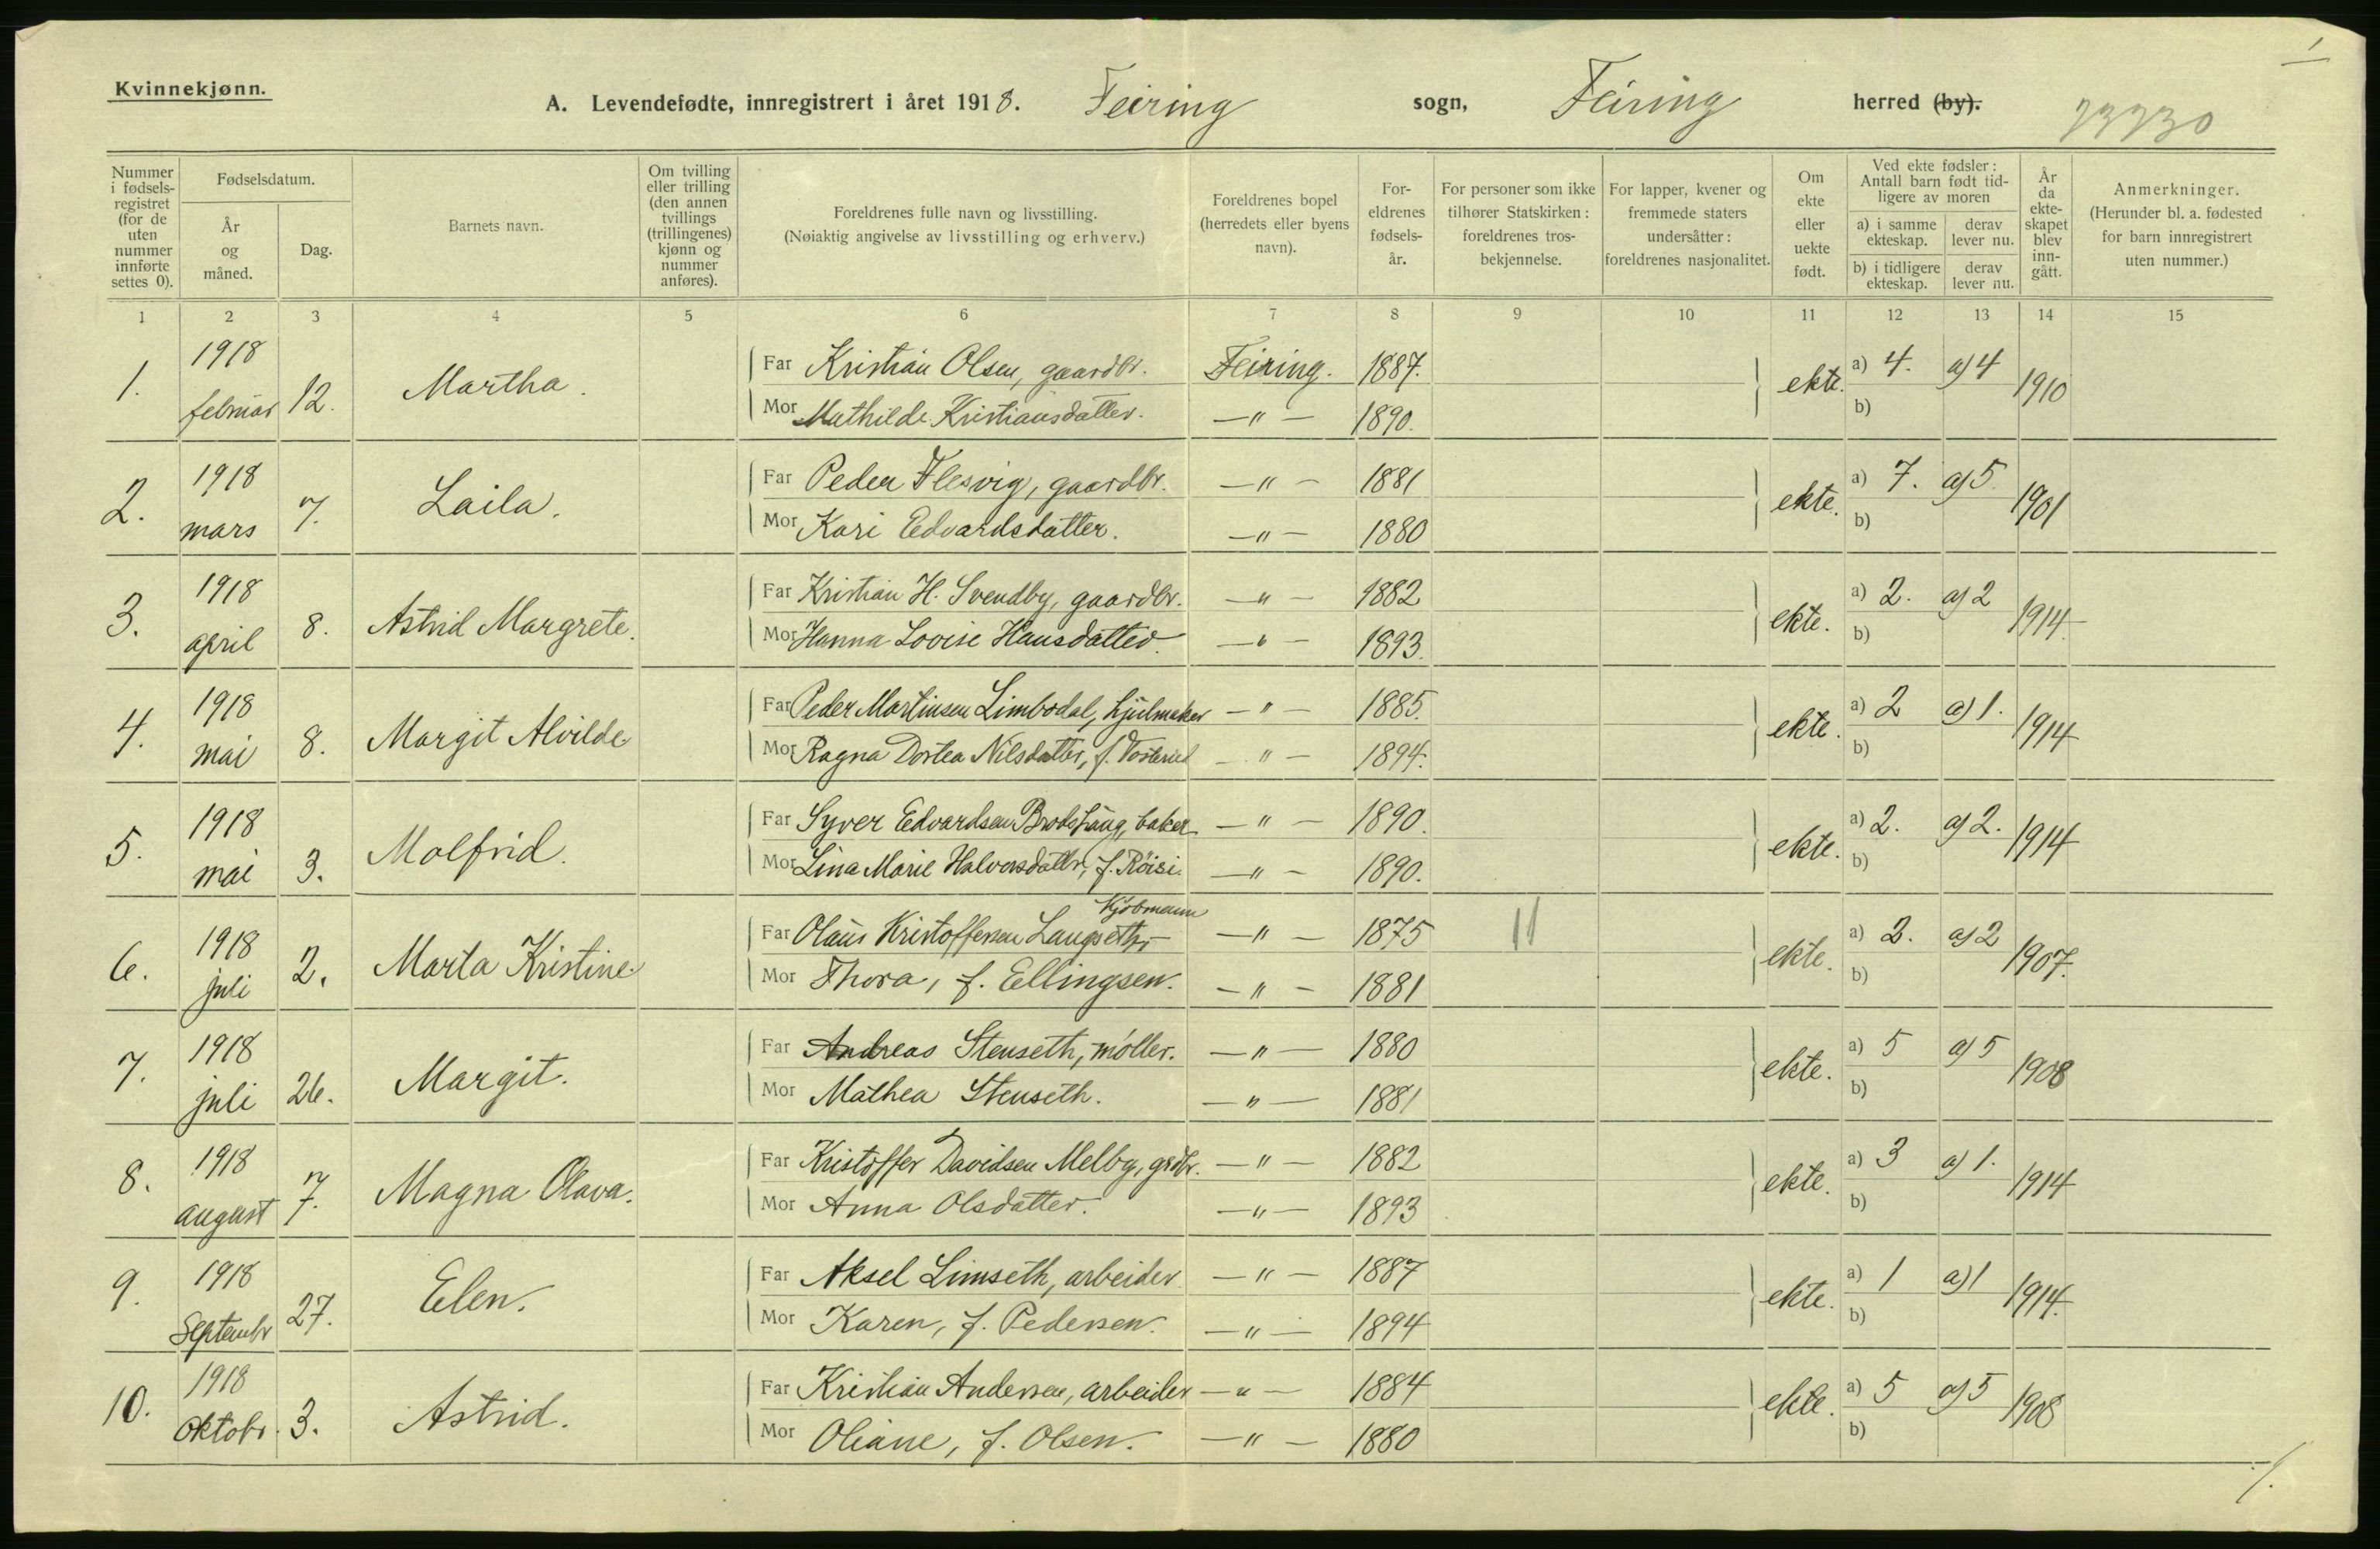 1
Kvinnekjønn.
A. Levendefødte, innregistrert i året 1918. Feiring sogn, Feiring herred (by).
Nummer i fødsels-registret (for de uten nummer innførte settes 0).
Fødselsdatum.
År og måned.
Dag.
Barnets navn.
Om tvilling eller trilling (den annen tvillings (trillingenes) kjønn og nummer anføres).
Foreldrenes fulle navn og livsstilling.
(Nøiaktig angivelse av livsstilling og erhverv.)
Foreldrenes bopel (herredets eller byens navn).
For-eldrenes fødsels-år.
For personer som ikke tilhører Statskirken: foreldrenes tros-bekjennelse.
For lapper, kvener og fremmede staters undersåtter: foreldrenes nasjonalitet.
Om ekte eller uekte født.
Ved ekte fødsler: Antall barn født tid-ligere av moren
a) i samme ekteskap.
derav lever nu.
b) i tidligere ekteskap.
derav lever nu.
År da ekte-skapet blev inn-gått.
Anmerkninger.
(Herunder bl. a. fødested for barn innregistrert uten nummer.)
1 2 3 4 5 6 7 8 9 10 11 12 13 14 15
1. 1918 februar 12. Martha.
Far Kristian Olsen, gaardbr. Feiring. 1887.
Mor Mathilde Kristiansdatter. —"— 1890.
ekte. a) 4. a) 4 b) 1910
2. 1918 mars 7. Laila.
Far Peder Flesvig, gaardbr. —"— 1881
Mor Kari Edvardsdatter. —"— 1880
ekte. a) 7. a) 5. b) 1901
3. 1918 april 8. Astrid Margrete.
Far Kristian H. Svendby, gaardbr. —"— 1882
Mor Hanna Lovise Hansdatter. —"— 1893.
ekte. a) 2. a) 2 b) 1914.
4. 1918 mai 8. Margit Alvilde
Far Peder Martinsen Limbodal, hjulmaker —"— 1885.
Mor Ragna Dortea Nilsdatter, f. —"— 1894.
ekte. a) 2 a) 1. b) 1914
5. 1918 mai 3. Molfrid.
Far Syver Edvardsen baker —"— 1890.
Mor Lina Marie Halvorsdatter, f. Röisi. —"— 1890.
ekte. a) 2. a) 2. b) 1914
6. 1918 juli 2. Marta Kristine
Kjöbmann
Far Olaus Kristoffersen Langseth, —"— 1875 11
Mor Thora, f. Ellingsen. —"— 1881
ekte. a) 2. a) 2 b) 1907.
7. 1918 juli 26. Margit.
Far Andreas Stenseth, möller. —"— 1880
Mor Mathea Stenseth. —"— 1881
ekte. a) 5 a) 5 b) 1908
8. 1918 august 7. Magna Olava.
Far Kristoffer Davidsen Melby, grdbr. —"— 1882
Mor Anna Olsdatter. —"— 1893
ekte. a) 3 a) 1. b) 1914
9. 1918 Septembr 27. Elen.
Far Aksel Limseth, arbeider —"— 1887
Mor Karen, f. Pedersen. —"— 1894
ekte. a) 1 a) 1 b) 1914.
10. 1918 Oktobr. 3. Astrid.
Far Kristian Andersen, arbeider —"— 1884
Mor Oliane, f. Olsen. —"— 1880
ekte. a) 5 a) 5 b) 1908